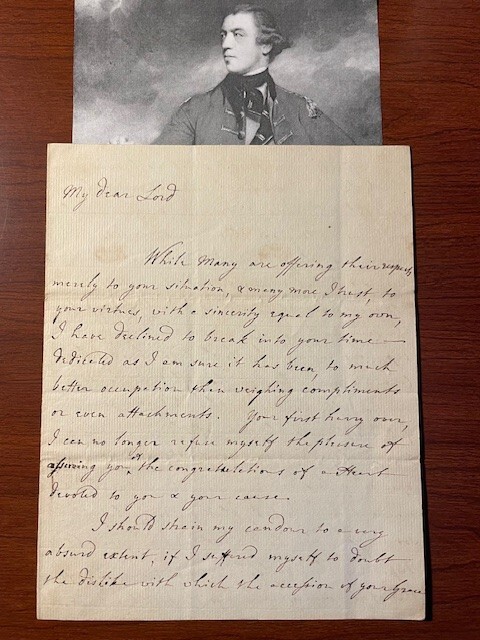 My dear Lord
While Many are offering their respects
merely to your situation, & many more I trust, to
your virtues, with a sincerity equal to my own,
I have declined to break into your time —
dedicated as I am sure it has been to much
better occupation than weighing compliments
or even attachments. Your first hurry over,
I can no longer refuse myself the pleasure of
assuring you of the congratulations of a Heart
devoted to you & your cause.
I should strain my candour to a very
absurd extent, if I suffered myself to doubt
the dislike with which the accession of your Grace